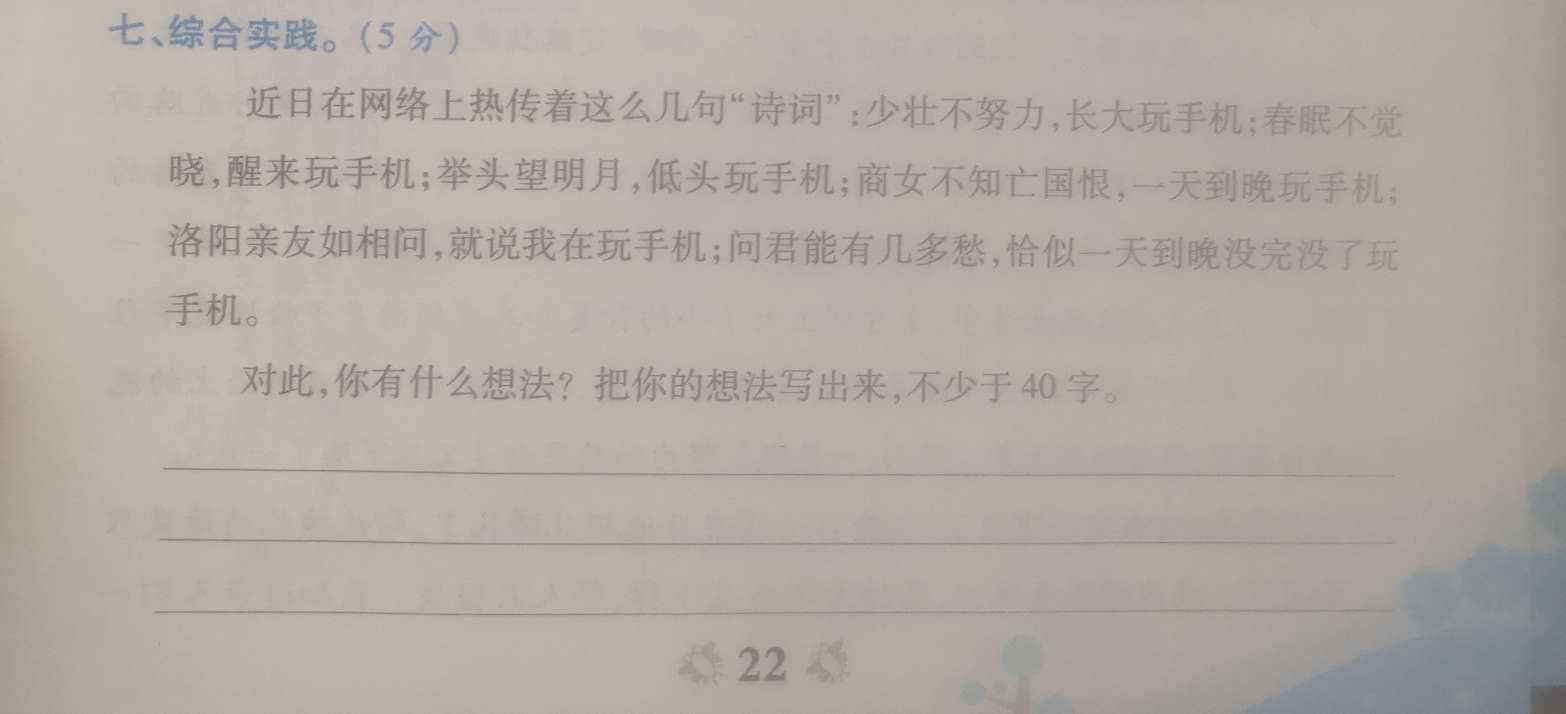 七、综合实践。(5分)
近日在网络上热传着这么几句“诗词”:少壮不努力,长大玩手机;春眠不觉
晓,醒来玩手机;举头望明月,低头玩手机;商女不知亡国恨,一天到晚玩手机;
洛阳亲友如相问,就说我在玩手机;问君能有几多愁,恰似一天到晚没完没了玩
手机。
对此,你有什么想法?把你的想法写出来,不少于40字。
22